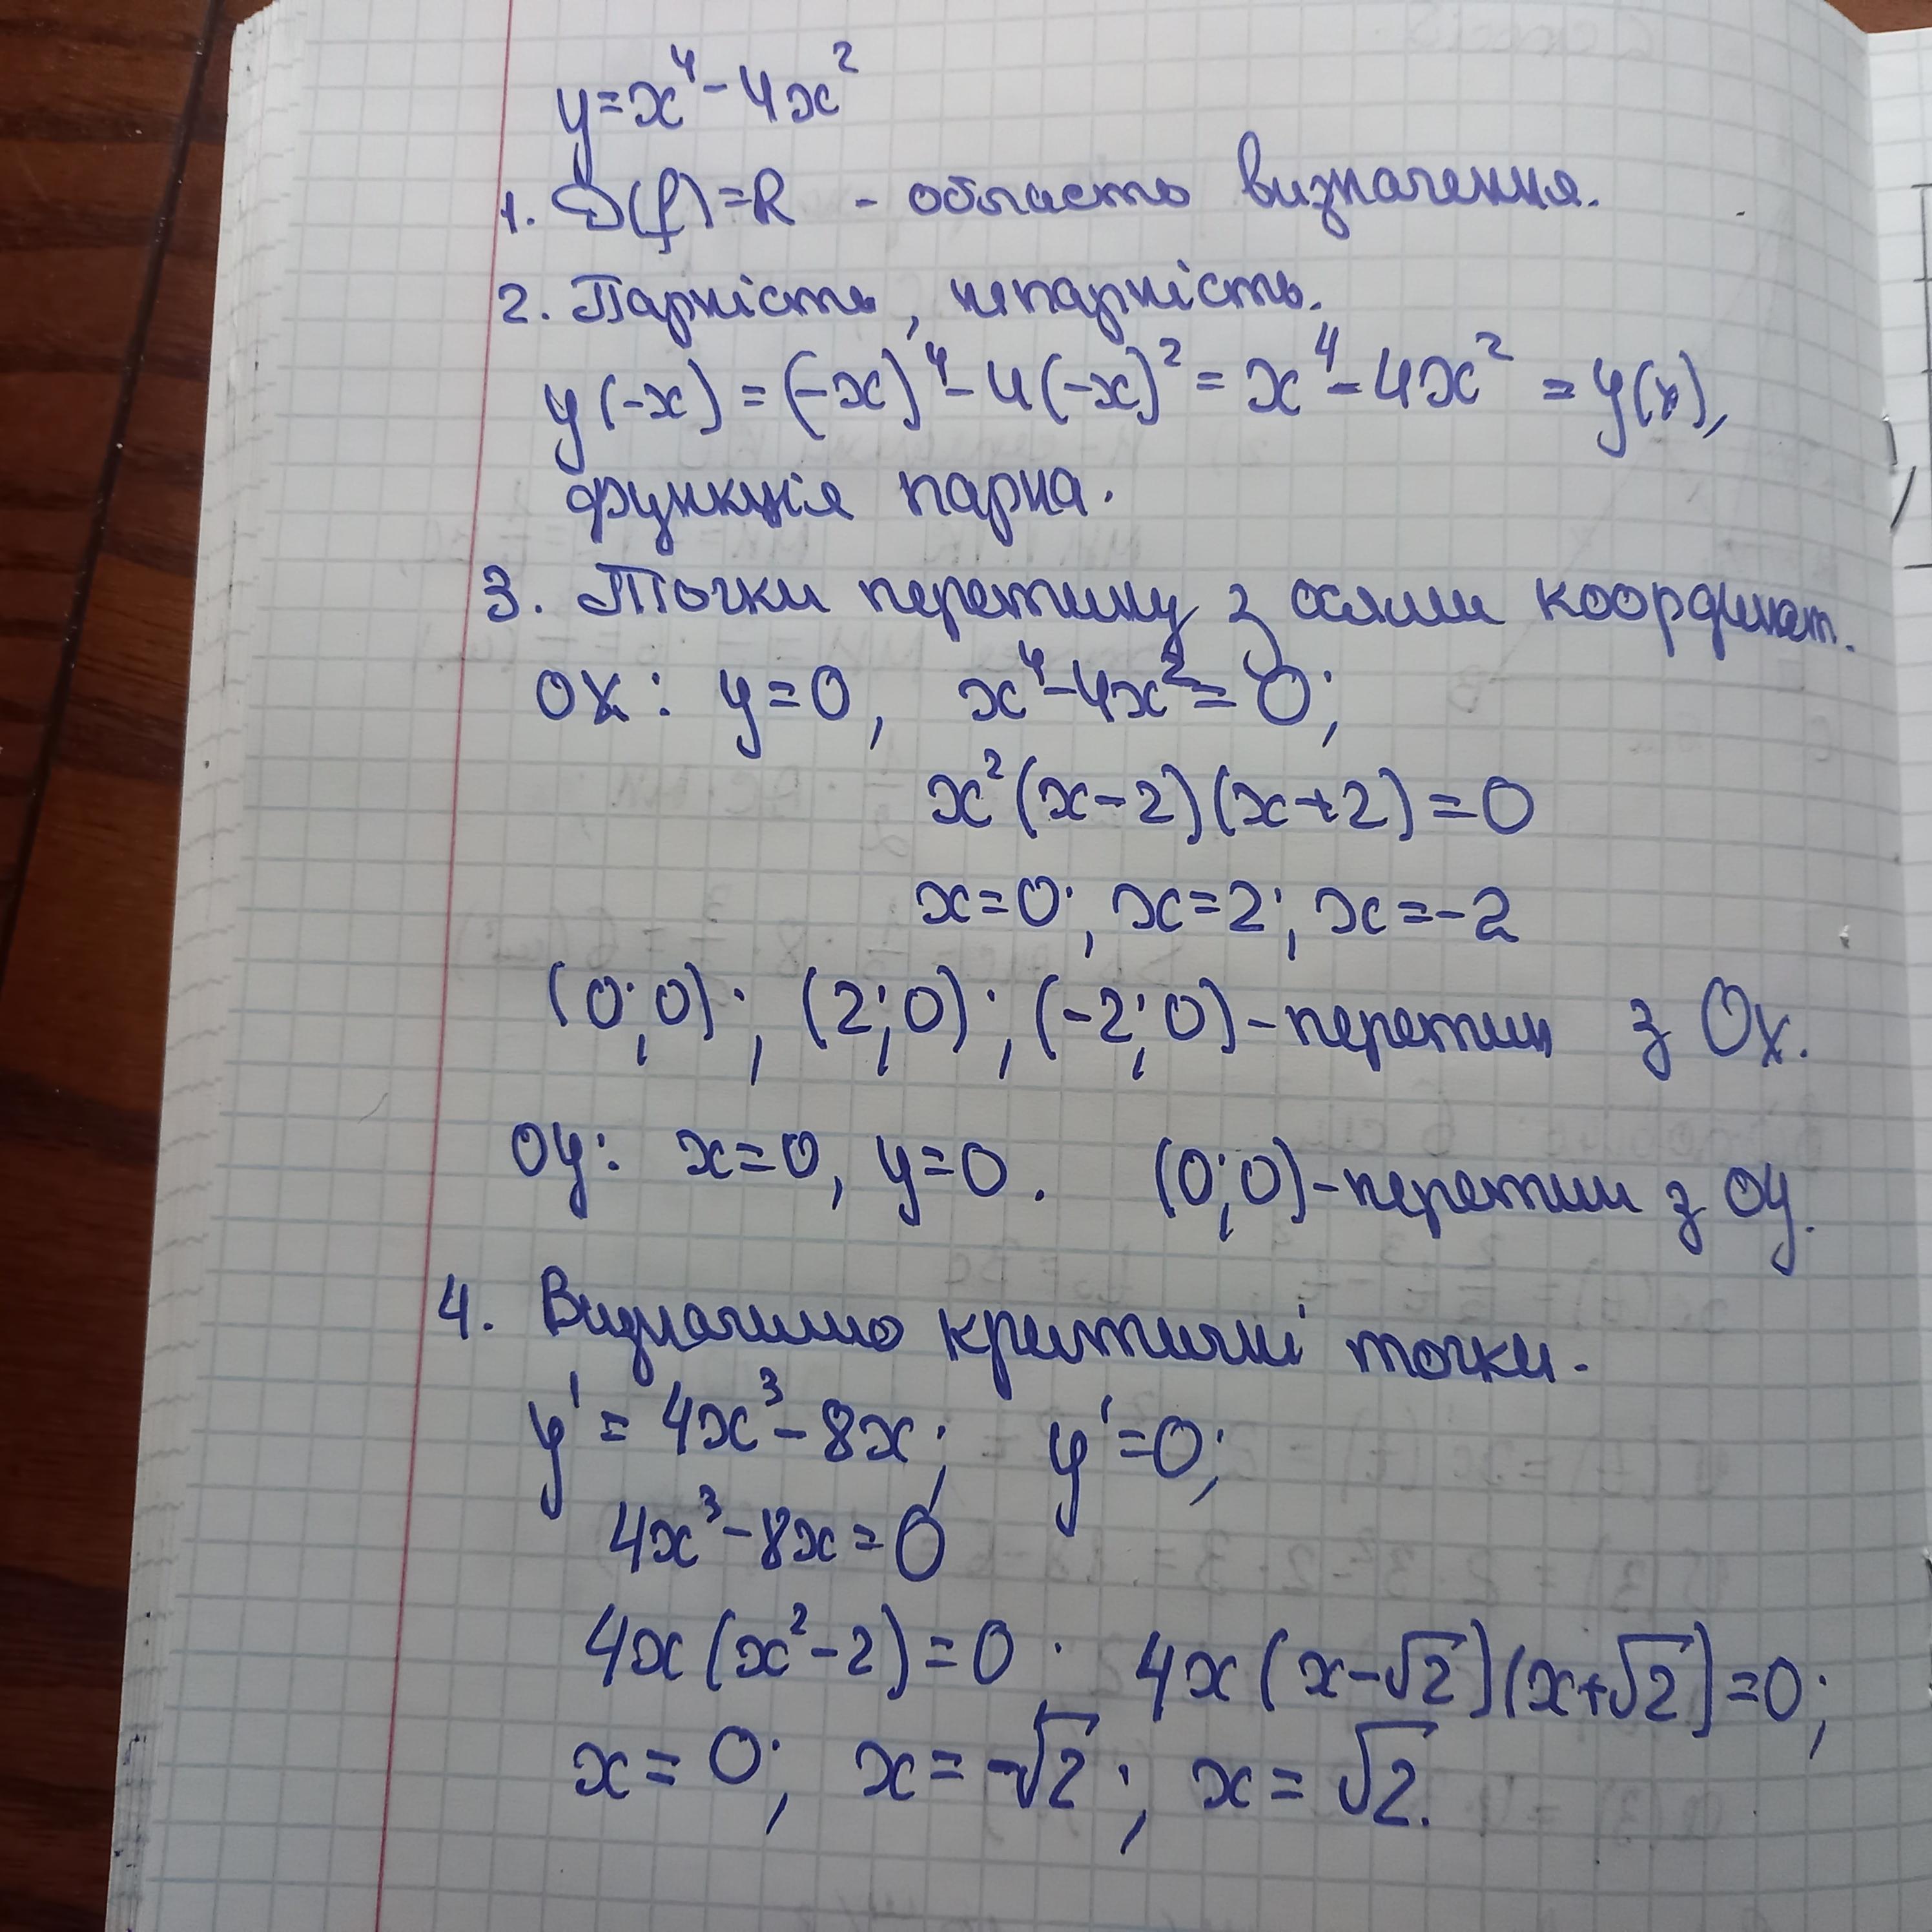 y=x⁴-4x²
1. D(f)=R - область визначення.
2. Парність, непарність.
y(-x)=(-x)⁴-4(-x)²=x⁴-4x²=y(x),
функція парна.
3. Точки перетину з осями координат.
OX: y=0, x⁴-4x²=0;
x²(x-2)(x+2)=0
x=0; x=2; x=-2
(0;0); (2;0); (-2;0)-перетин з Ox.
Oy: x=0, y=0. (0;0)-перетин з Oy.
4. Визначимо критичні точки.
y'=4x³-8x; y'=0;
4x³-8x=0
4x(x²-2)=0. 4x(x-√2)(x+√2)=0;
x=0; x=-√2; x=√2.